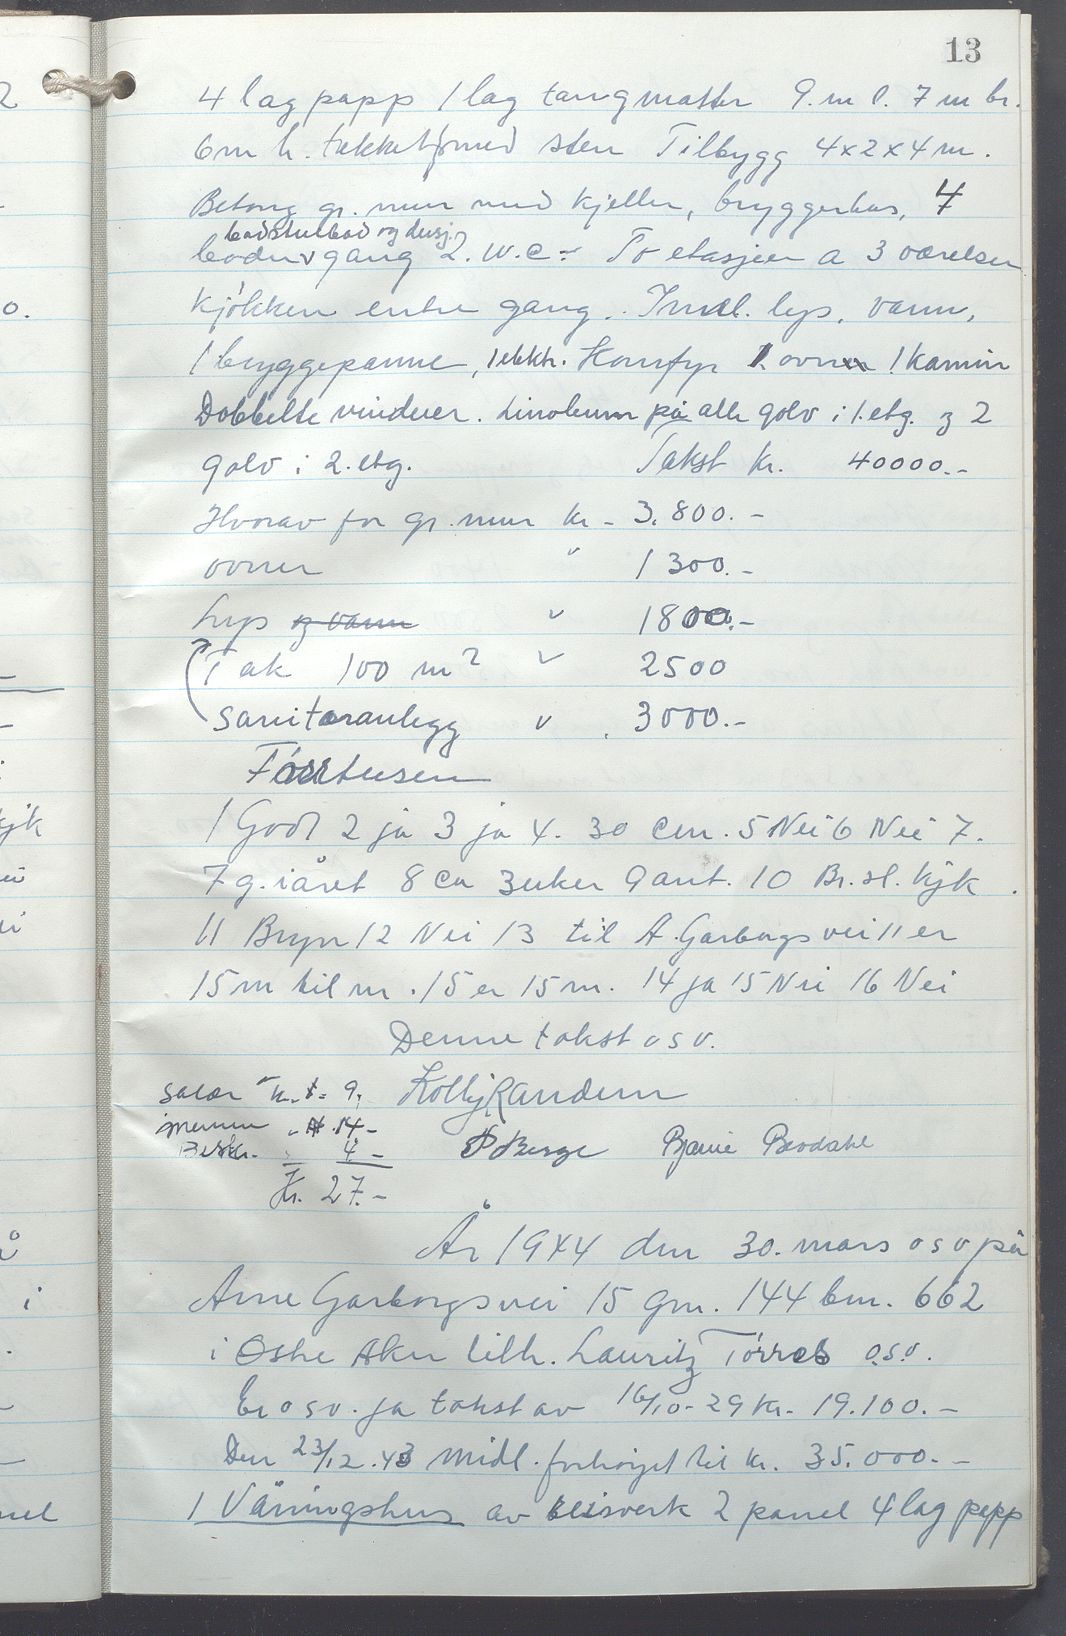 13
4 lag papp 1 lag tangmatter 9. m l. 7 m br.
6 m h. tekket med sten Tilbygg 4x2x4 m.
Betong gr. mur med kjeller, bryggerhus, 4
badstubad og dusj.
boder v gang 2. W.C. To etasjer a 3 værelser
kjøkken entre gang. Innl. lys, vann,
1 bryggepanne, 1 elektr. Komfyr 1. ovner 1 kamin
Dobbelte vinduer. Linoleum på alle golv i 1. etg. og 2
golv i 2. etg. Takst kr. 40000.-
Hvorav for gr. mur kr - 3.800.-
ovner " 1300.-
Lys og vann " 1800.-
Tak 100 m2 " 2500
Sanitæranlegg " 3000.-
Forrtusen
1 Godt 2 ja 3 ja 4. 30 cm. 5 Nei 6 Nei 7.
7 g. i året 8 ca 3 uker 9 ant. 10 Br. sl. kjk.
11 Bryn 12 Nei 13 til A. Garborgs vei 11 er
15 m til nr. 15 er 15 m. 14 ja 15 Nei 16 Nei
Denne takst o s v.
Salær " kr. 9.
Kolbj Randem
14 -
Beskr. " 4 -
P Berge Bjarne Brodahl
Kr. 27.-
År 1944 den 30. mars o s v på
Arne Garborgs vei 15 gnr. 144 bnr. 662
i Østre Aker tilh. Lauritz Törres o.s.v.
Er o s v. ja takst av 16/10-29 kr. 19.100.-
Den 23/12.43 midl. forhøiet til kr. 35.000.-
1 Våningshus av reisverk 2 panel 4 lag papp